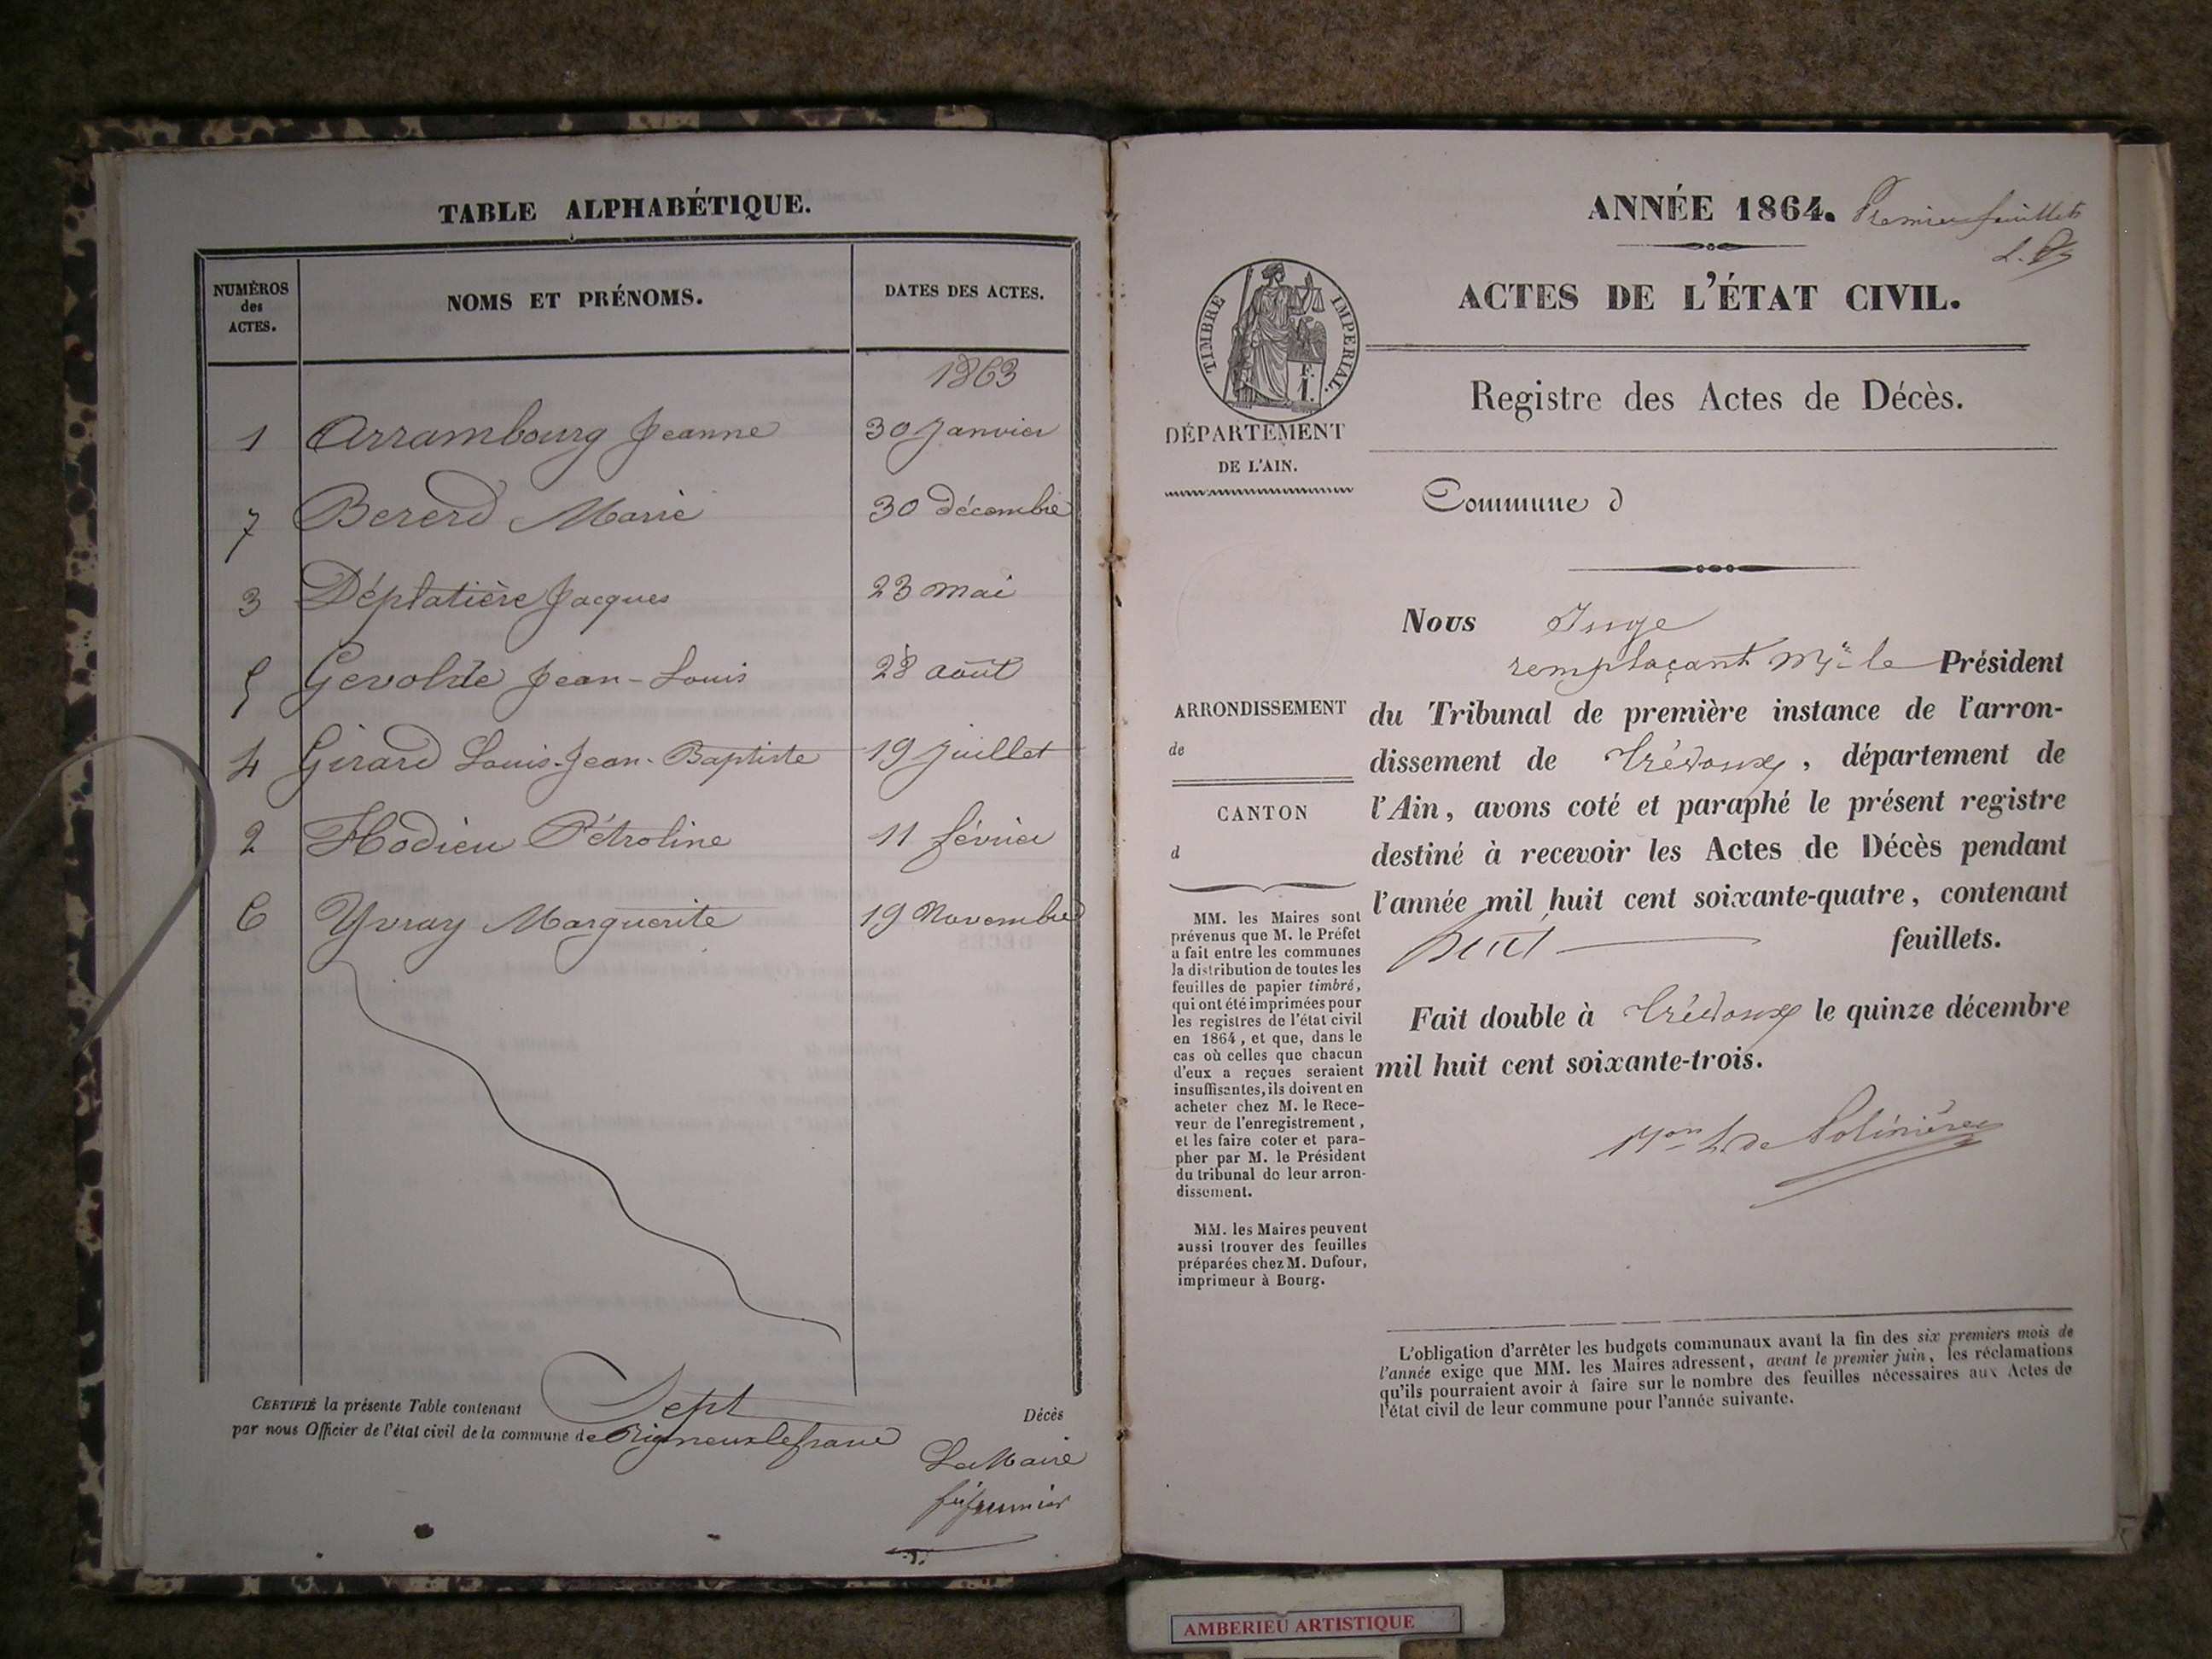 TABLE ALPHABÉTIQUE.
NUMÉROS des ACTES. NOMS ET PRÉNOMS. DATES DES ACTES.
1863
1 Arrambourg Jeanne 30 Janvier
7 Bererd Marie 30 décembre
3 Déplatière Jacques 23 mai
5 Gevolde Jean-Louis 28 août
4 Girard Louis-Jean-Baptiste 19 Juillet
2 Hodieu Pétroline 11 février
6 Yvray Marguerite 19 Novembre
CERTIFIÉ la présente Table contenant Sept Décès
par nous Officier de l'état civil de la commune de Rigneuxlefranc
Le Maire
ANNÉE 1864. Premier feuillet
TIMBRE IMPERIAL.
ACTES DE L'ÉTAT CIVIL.
Registre des Actes de Décès.
DÉPARTEMENT
DE L'AIN.
Commune d
Nous Juge
remplaçant Mr le Président
du Tribunal de première instance de l'arron-
dissement de Trévoux, département de
l'Ain, avons coté et paraphé le présent registre
destiné à recevoir les Actes de Décès pendant
l'année mil huit cent soixante-quatre, contenant
huit feuillets.
Fait double à Trévoux le quinze décembre
mil huit cent soixante-trois.
ARRONDISSEMENT
de
CANTON
d
MM. les Maires sont
prévenus que M. le Préfet
a fait entre les communes
la distribution de toutes les
feuilles de papier timbré,
qui ont été imprimées pour
les registres de l'état civil
en 1864, et que, dans le
cas où celles que chacun
d'eux a reçues seraient
insuffisantes, ils doivent en
acheter chez M. le Rece-
veur de l'enregistrement,
et les faire coter et para-
pher par M. le Président
du tribunal de leur arron-
dissement.
MM. les Maires peuvent
aussi trouver des feuilles
préparées chez M. Dufour,
imprimeur à Bourg.
L'obligation d'arrêter les budgets communaux avant la fin des six premiers mois de
l'année exige que MM. les Maires adressent, avant le premier juin, les réclamations
qu'ils pourraient avoir à faire sur le nombre des feuilles nécessaires aux Actes de
l'état civil de leur commune pour l'année suivante.
AMBERIEU ARTISTIQUE